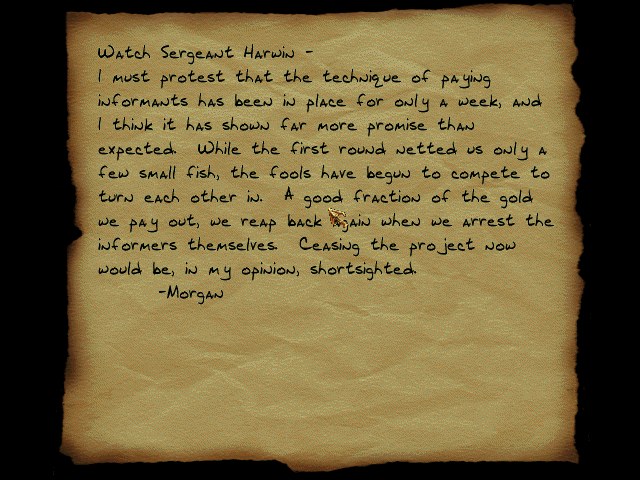 Watch Sergeant Harwin -
I must protest that the technique of paying
informants has been in place for only a week, and
I think it has shown far more promise than
expected. While the first round netted us only a
few small fish, the fools have begun to compete to
turn each other in. A good fraction of the gold
we pay out, we reap back again when we arrest the
informers themselves. Ceasing the project now
would be, in my opinion, shortsighted.
-Morgan